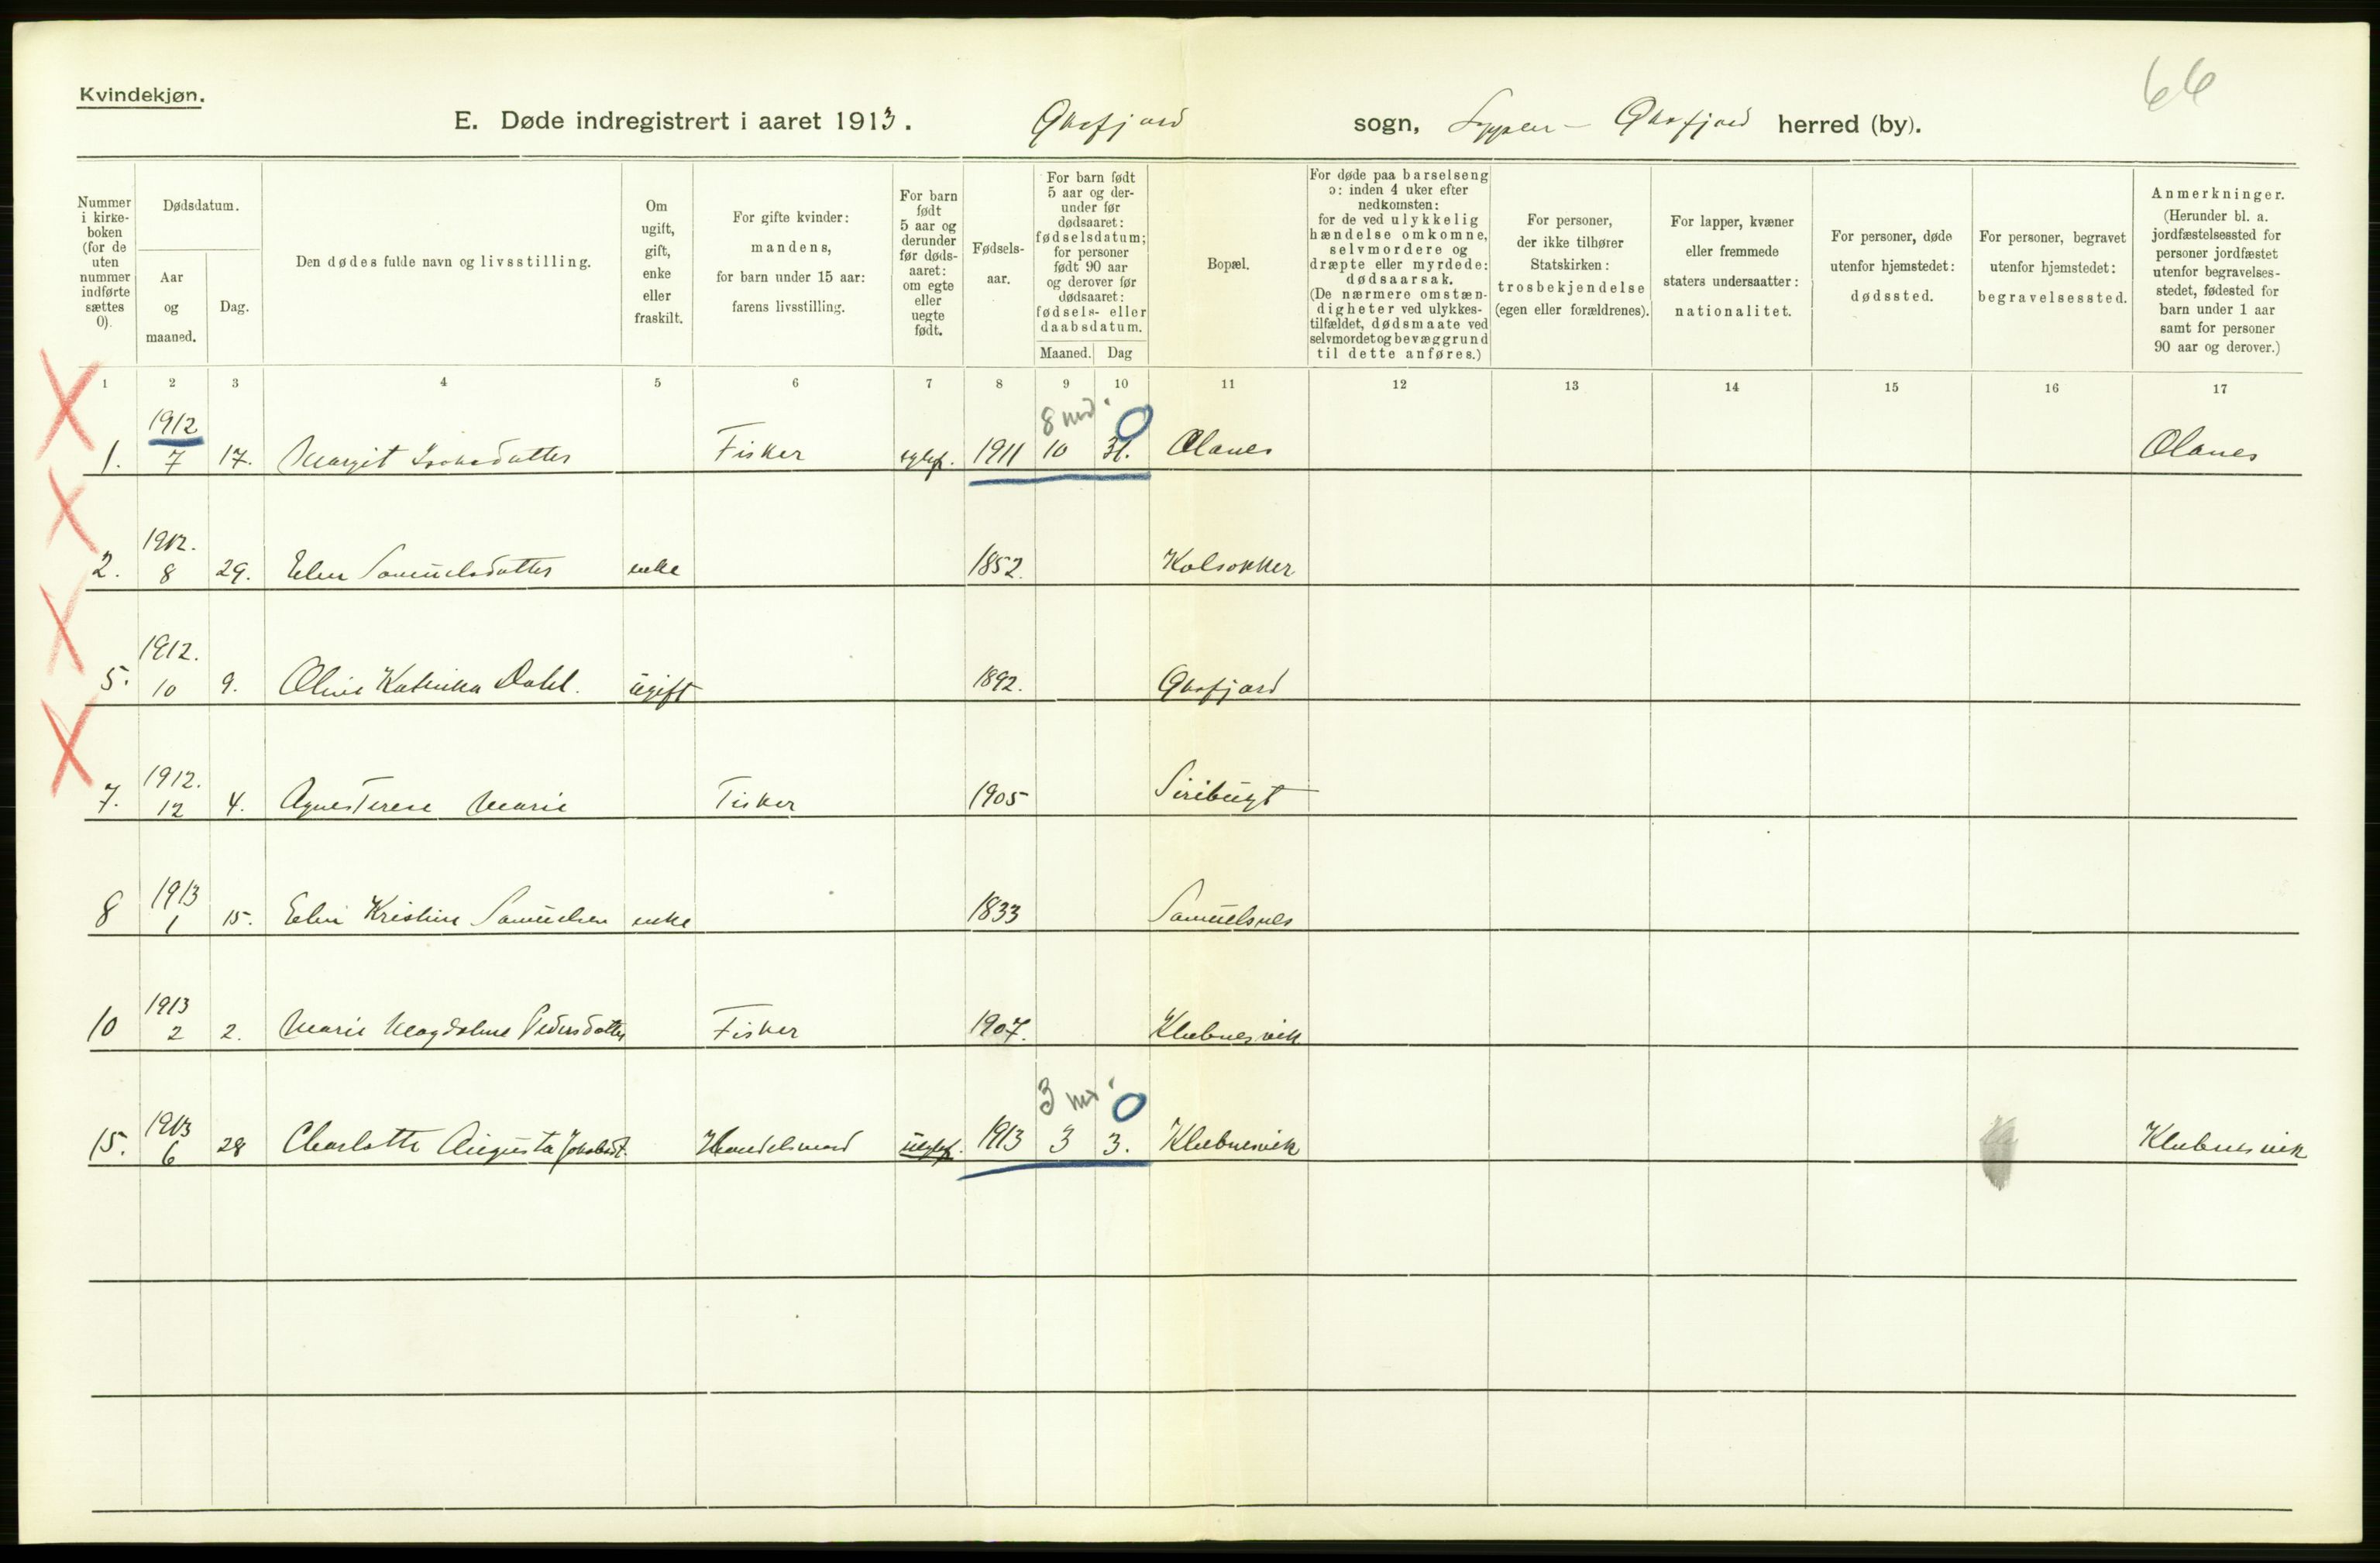 Kvindekjøn.
66
E. Døde indregistrert i aaret 1913. Øksfjord sogn, Loppen - Øksfjord herred (by).
Nummer i kirke-boken (for de uten nummer indførte sættes 0).
Dødsdatum.
Aar og maaned.
Dag.
Den dødes fulde navn og livsstilling.
Om ugift, gift, enke eller fraskilt.
For gifte kvinder: mandens, for barn under 15 aar: farens livsstilling.
For barn født 5 aar og derunder før døds-aaret: om egte eller uegte født.
Fødsels-aar.
For barn født 5 aar og der-under før dødsaaret: fødselsdatum; for personer født 90 aar og derover før dødsaaret: fødsels- eller daabsdatum.
Maaned. Dag
Bopæl.
For døde paa barselseng ɔ: inden 4 uker efter nedkomsten: for de ved ulykkelig hændelse omkomne, selvmordere og dræpte eller myrdede: dødsaarsak. (De nærmere omstæn-digheter ved ulykkes-tilfældet, dødsmaate ved selvmordet og bevæggrund til dette anføres.)
For personer, der ikke tilhører Statskirken: trosbekjendelse (egen eller forældrenes).
For lapper, kvæner eller fremmede staters undersaatter: nationalitet.
For personer, døde utenfor hjemstedet: dødssted.
For personer, begravet utenfor hjemstedet: begravelsessted.
Anmerkninger. (Herunder bl. a. jordfæstelsessted for personer jordfæstet utenfor begravelses-stedet, fødested for barn under 1 aar samt for personer 90 aar og derover.)
1 2 3 4 5 6 7 8 9 10 11 12 13 14 15 16 17
1912 8 md. 0
1. 7 17. Margit Isaksdatter Fisker egtef. 1911 10 31. Olanes Olanes
1912.
2. 8 29. Elen Samuelsdatter enke 1852. Kolsokker
1912.
5. 10 9. Oline Katinka Dahl. ugift 1892. Øksfjord
1912.
7. 12 4. Agnes Terese Marie Fisker 1905 Siribugt
1913
8 1 15. Elen Kristine Samuelsen enke 1833 Samuelsnes
1913
10 2 2. Marie Magdalene Pedersdatter Fisker 1907. Klubnesvik
1913 3 md. 0
15. 6 28 Charlotte Augusta Jakobsdt. Handelsmand uegtef. 1913 3 3. Klubnesvik Klubnesvik